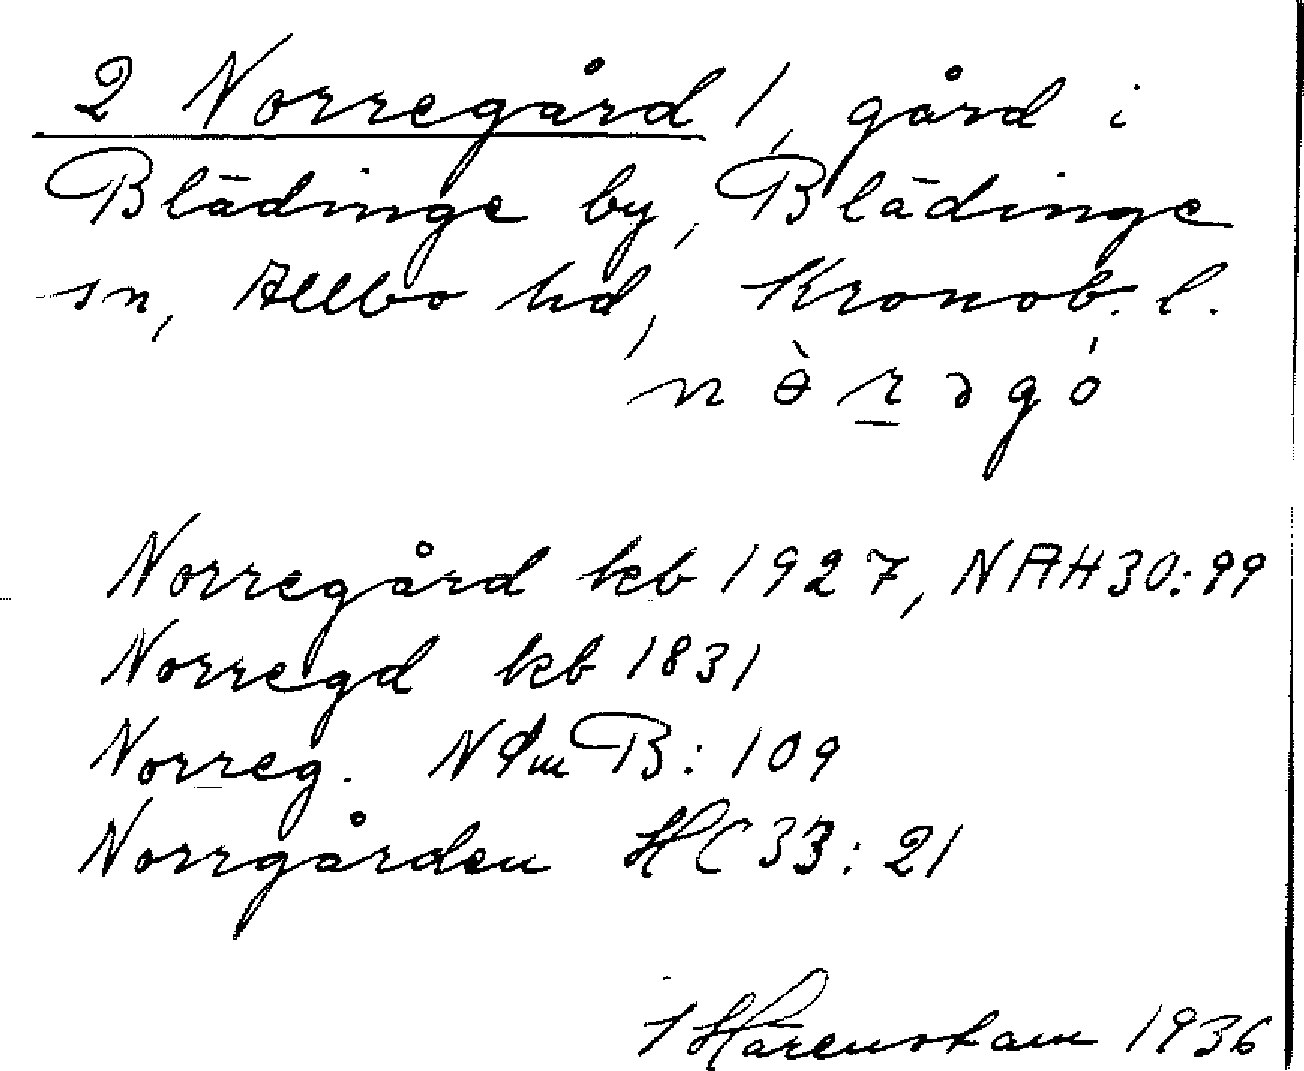 2 Norregård 1, gård i
Blädinge by, Blädinge
sn, Allbo hd, Kronob. l.
nɵ̀rəgó
Norregård kb 1927, NAH30:99
Norregd kb 1831
Norreg. N B:109
Norrgården HC33:21
Härenstam 1936